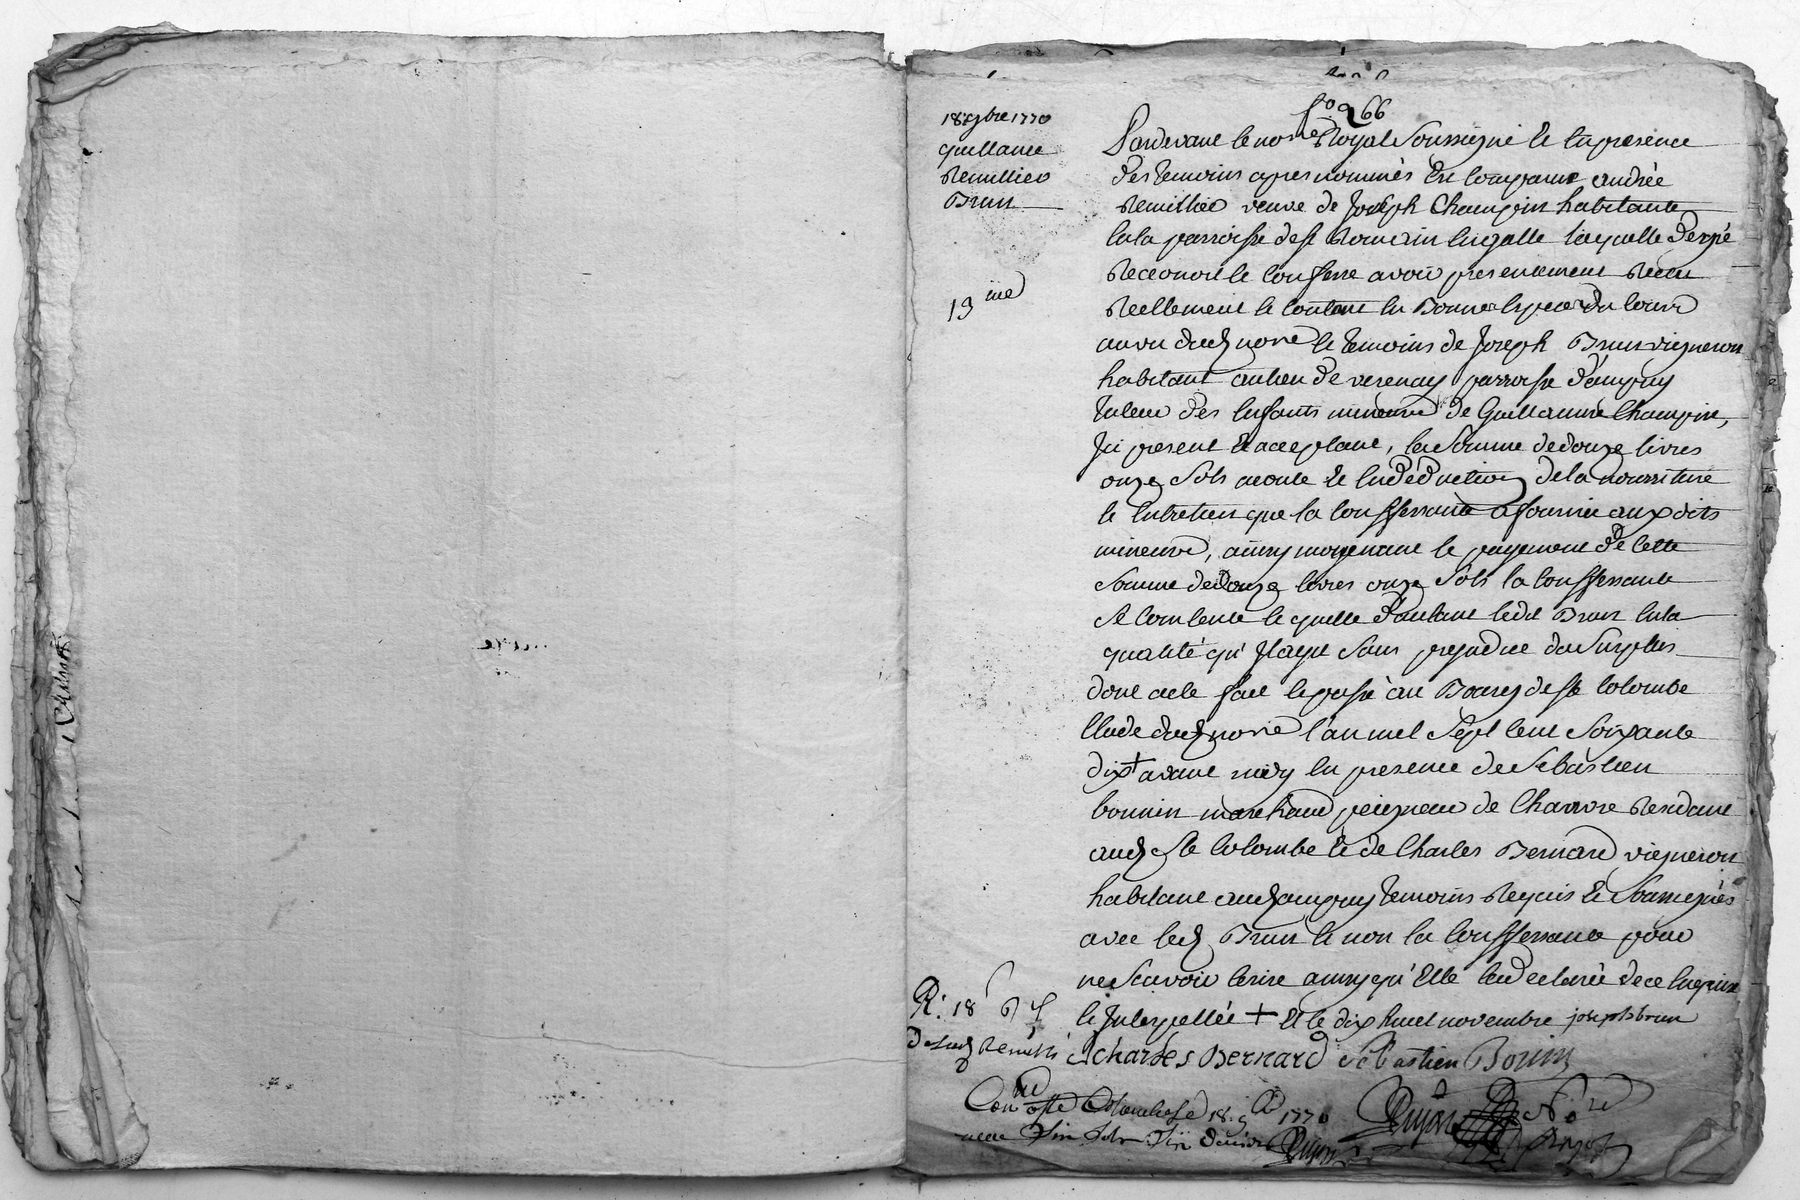 fo 266
18 9bre 1770
quittance
Remillieu
Brun
19me
Pardevant le nore Royal Soussigné Et En presence
des temoins apres nommés Est comparue andrée
Remillieu veuve de Joseph Champin habitante
En la parroisse de st Romain Engalle laquelle de gré
Reconnoit Et Confesse avoir presentement Receu
Reellement Et Contant En Bonnes Especes du cours
au vu dud nore Et temoins de Joseph Brun vigneron
habitant au lieu de verenay parroisse d'ampuy
tuteur des Enfants mineurs de Guillaume Champin,
Ici present Et acceptant, la Somme de douze livres
onze Sols acompte Et En déduction de la nourriture
Et Entretien que la Conffessante a fournie aux dits
mineurs, ainsy moyenant le payement de cette
Somme de douze livres onze Sols la Conffessante
Se Contente Et quitte d'autant ledit Brun En la
qualité qu'Il agit Sans prejudice du Surplus
dont acte fait Et passé au Bourg de ste Colombe
Etude dud nore l'an mil Sept Cent Soixante
dix + avant midy En presence de Sebastien
bonnin marchand peigneur de Chanvre Residant
aud ste Colombe Et de Charles Bernard vigneron
habitant aud ampuy temoins Requis Et Soussignés
avec led Brun Et non la Conffessante pour
ne Scavoir Ecrire ainsy qu'Elle l'a declaré de ce Enquise
Et Interpellée + Et le dix huit novembre joseph brun
R: 18
charles Bernard Sebastien Bonin
Conlé a ste Colombe le 18 9bre 1770